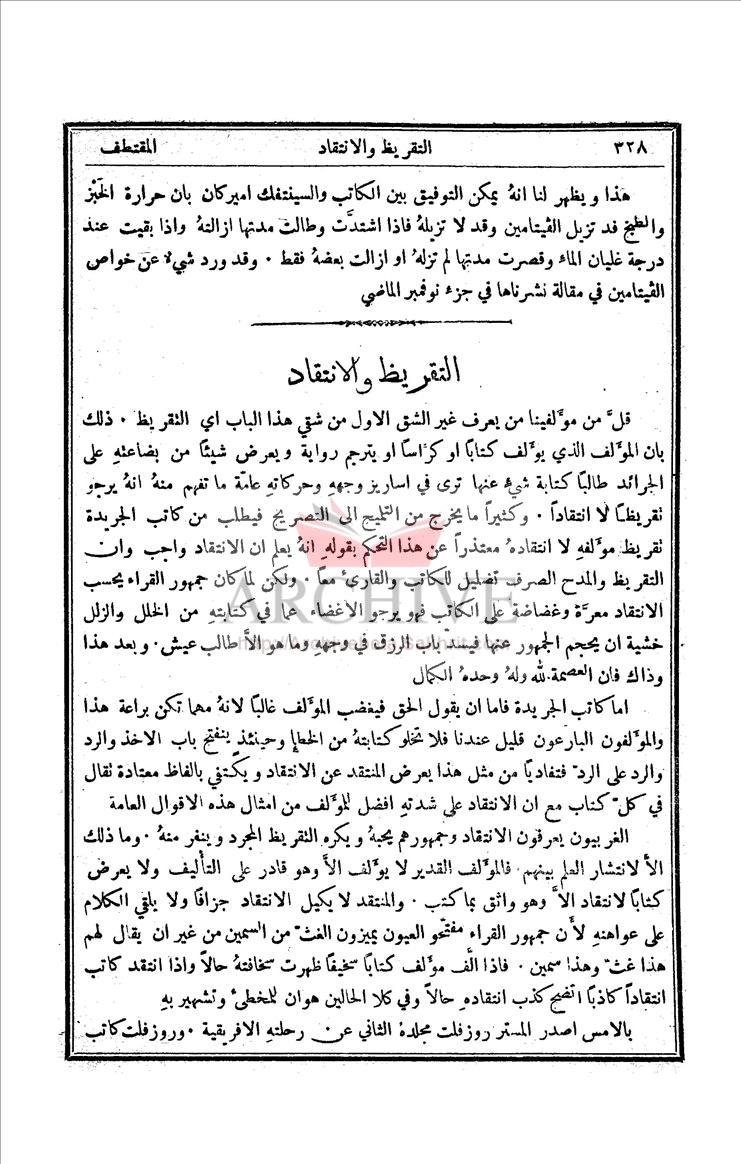 ٣٢٨ التقريظ والانتقاد المقتطف
هذا ويظهر لنا انهُ يمكن التوفيق بين الكاتب والسينتفك اميركان بان حرارة الخَبْز
والطبخ قد تزيل الڤيتامين وقد لا تزيلهُ فاذا اشتدَّت وطالت مدتها ازالتهُ واذا بقيت عند
درجة غليان الماء وقصرت مدتها لم تزلهُ او ازالت بعضهُ فقط . وقد ورد شيء عن خواص
الڤيتامين في مقالة نشرناها في جزء نوفمبر الماضي
التقريظ والانتقاد
قلَّ من مؤلفينا من يعرف غير الشق الاول من شقي هذا الباب اي التقريظ . ذلك
بان المؤلف الذي يؤلف كتابًا او كرّاسًا او يترجم رواية ويعرض شيئًا من بضاعتهِ على
الجرائد طالبًا كتابة شيء عنها ترى في اسارير وجههِ وحركاتهِ عامّة ما تفهم منهُ انهُ يرجو
تقريظًا لا انتقاداً . وكثيراً ما يخرج من التلميح الى التصريح فيطلب من كاتب الجريدة
تقريظ مؤلفهِ لا انتقادهُ معتذراً عن هذا التحكم بقولهِ انهُ يعلم ان الانتقاد واجب وان
التقريظ والمدح الصرف تضليل للكاتب والقارئ معاً . ولكن لما كان جمهور القراء يحسب
الانتقاد معرّة وغضاضة على الكاتب فهو يرجو الاغضاء عما في كتابتهِ من الخلل والزلل
خشية ان يحجم الجمهور عنها فيسدّ باب الرزق في وجههِ وما هو الاَّ طالب عيش . وبعد هذا
وذاك فان العصمة لله ولهُ وحدهُ الكمال
اما كاتب الجريدة فاما ان يقول الحق فيغضب المؤلف غالبًا لانهُ مهما تكن براعة هذا
والمؤلفون البارعون قليل عندنا فلا تخلو كتابتهُ من الخطإ وحينئذ ينفتح باب الاخذ والرد
والرد على الردّ فتفاديًا من مثل هذا يعرض المنتقد عن الانتقاد ويكتفي بالفاظ معتادة تقال
في كلّ كتاب مع ان الانتقاد على شدتهِ افضل للمؤلف من امثال هذه الاقوال العامة
الغربيون يعرفون الانتقاد وجمهورهم يحبهُ ويكره التقريظ المجرد وينفر منهُ . وما ذلك
الاَّ لانتشار العلم بينهم . فالمؤلف القدير لا يؤلف الاَّ وهو قادر على التأليف ولا يعرض
كتابًا لانتقاد الاَّ وهو واثق بما كتب . والمنتقد لا يكيل الانتقاد جزافًا ولا يلقي الكلام
على عواهنهِ لأن جمهور القراء مفتّحو العيون يميزون الغثّ من السمين من غير ان يقال لهم
هذا غثّ وهذا سمين . فاذا الّف مؤلف كتابًا سخيفًا ظهرت سخافتهُ حالاً واذا انتقد كاتب
انتقاداً كاذبًا اتضح كذب انتقادهِ حالاً وفي كلا الحالين هوان للمخطئ وتشهير بهِ
بالامس اصدر المستر روزفلت مجلدهُ الثاني عن رحلتهِ الافريقية . وروزفلت كاتب
ARCHIVE